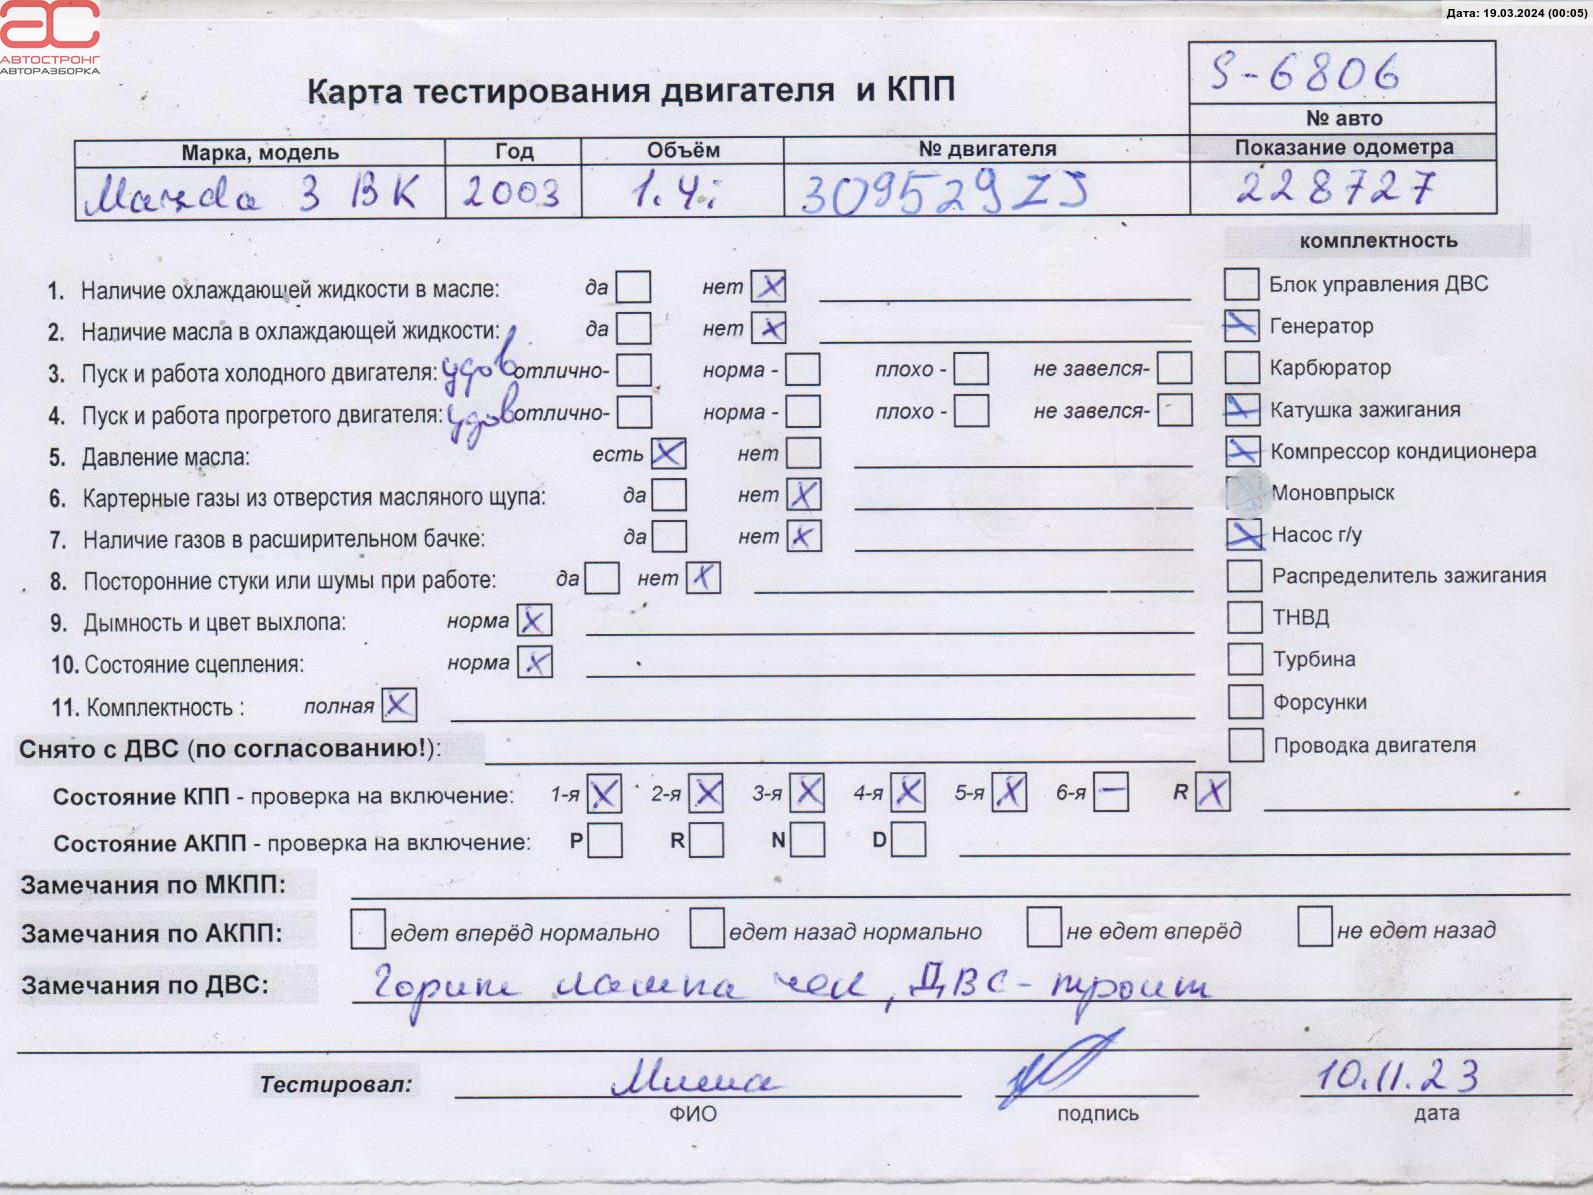 Дата: 19.03.2024 (00:05)
АС
АВТОСТРОНГ
АВТОРАЗБОРКА
S-6806
Карта тестирования двигателя и КПП
№ авто
Марка, модель Год Объём № двигателя Показание одометра
Mazda 3 BK 2003 1.4i 309529ZJ 228727
комплектность
1. Наличие охлаждающей жидкости в масле: да нет X
Блок управления ДВС
2. Наличие масла в охлаждающей жидкости: да нет X
Генератор
3. Пуск и работа холодного двигателя: удов отлично- норма - плохо - не завелся-
Карбюратор
4. Пуск и работа прогретого двигателя: удов отлично- норма - плохо - не завелся-
Катушка зажигания
5. Давление масла: есть X нет
Компрессор кондиционера
6. Картерные газы из отверстия масляного щупа: да нет X
Моновпрыск
7. Наличие газов в расширительном бачке: да нет X
Насос г/у
8. Посторонние стуки или шумы при работе: да нет X
Распределитель зажигания
9. Дымность и цвет выхлопа: норма X
ТНВД
10. Состояние сцепления: норма X
Турбина
11. Комплектность : полная X
Форсунки
Снято с ДВС (по согласованию!):
Проводка двигателя
Состояние КПП - проверка на включение: 1-я X 2-я X 3-я X 4-я X 5-я X 6-я – R X
Состояние АКПП - проверка на включение: P R N D
Замечания по МКПП:
Замечания по АКПП: едет вперёд нормально едет назад нормально не едет вперёд не едет назад
Замечания по ДВС: Горит лампа чек, ДВС - троит
Тестировал: Миша 10.11.23
ФИО подпись дата